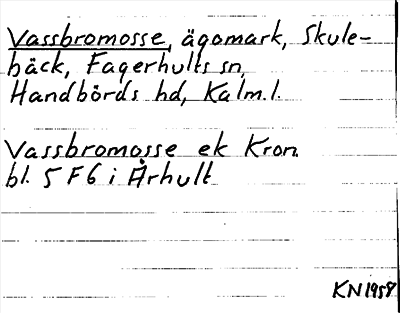 Vassbromosse, ägomark, Skule-
bäck, Fagerhults sn,
Handbörds hd, Kalm.l.
Vassbromosse ek Kron.
bl. 5 F 6 i Århult
KN 1958